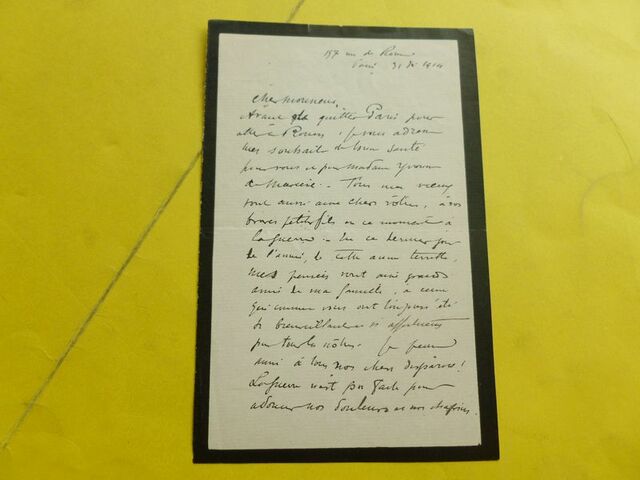 157 rue de Rome
Paris 31 Dc 1914
Cher monsieur,
Avant de quitter Paris pour
aller à Rouen, je vous adresse
mes souhaits de bonne santé
pour vous et pour Madame Yvonne
de . Tous mes vœux
vont aussi aux chers vôtres, à vos
braves petits fils en ce moment à
la guerre. En ce dernier jour
de l'année, de cette année terrible,
mes pensées vont aux grands
amis de ma famille, à ceux
qui comme vous ont toujours été
si bienveillants et si affectueux
pour tous les nôtres. Je pense
aussi à tous nos chers disparus!
La guerre n'est pas faite pour
adoucir nos douleurs et nos chagrins.